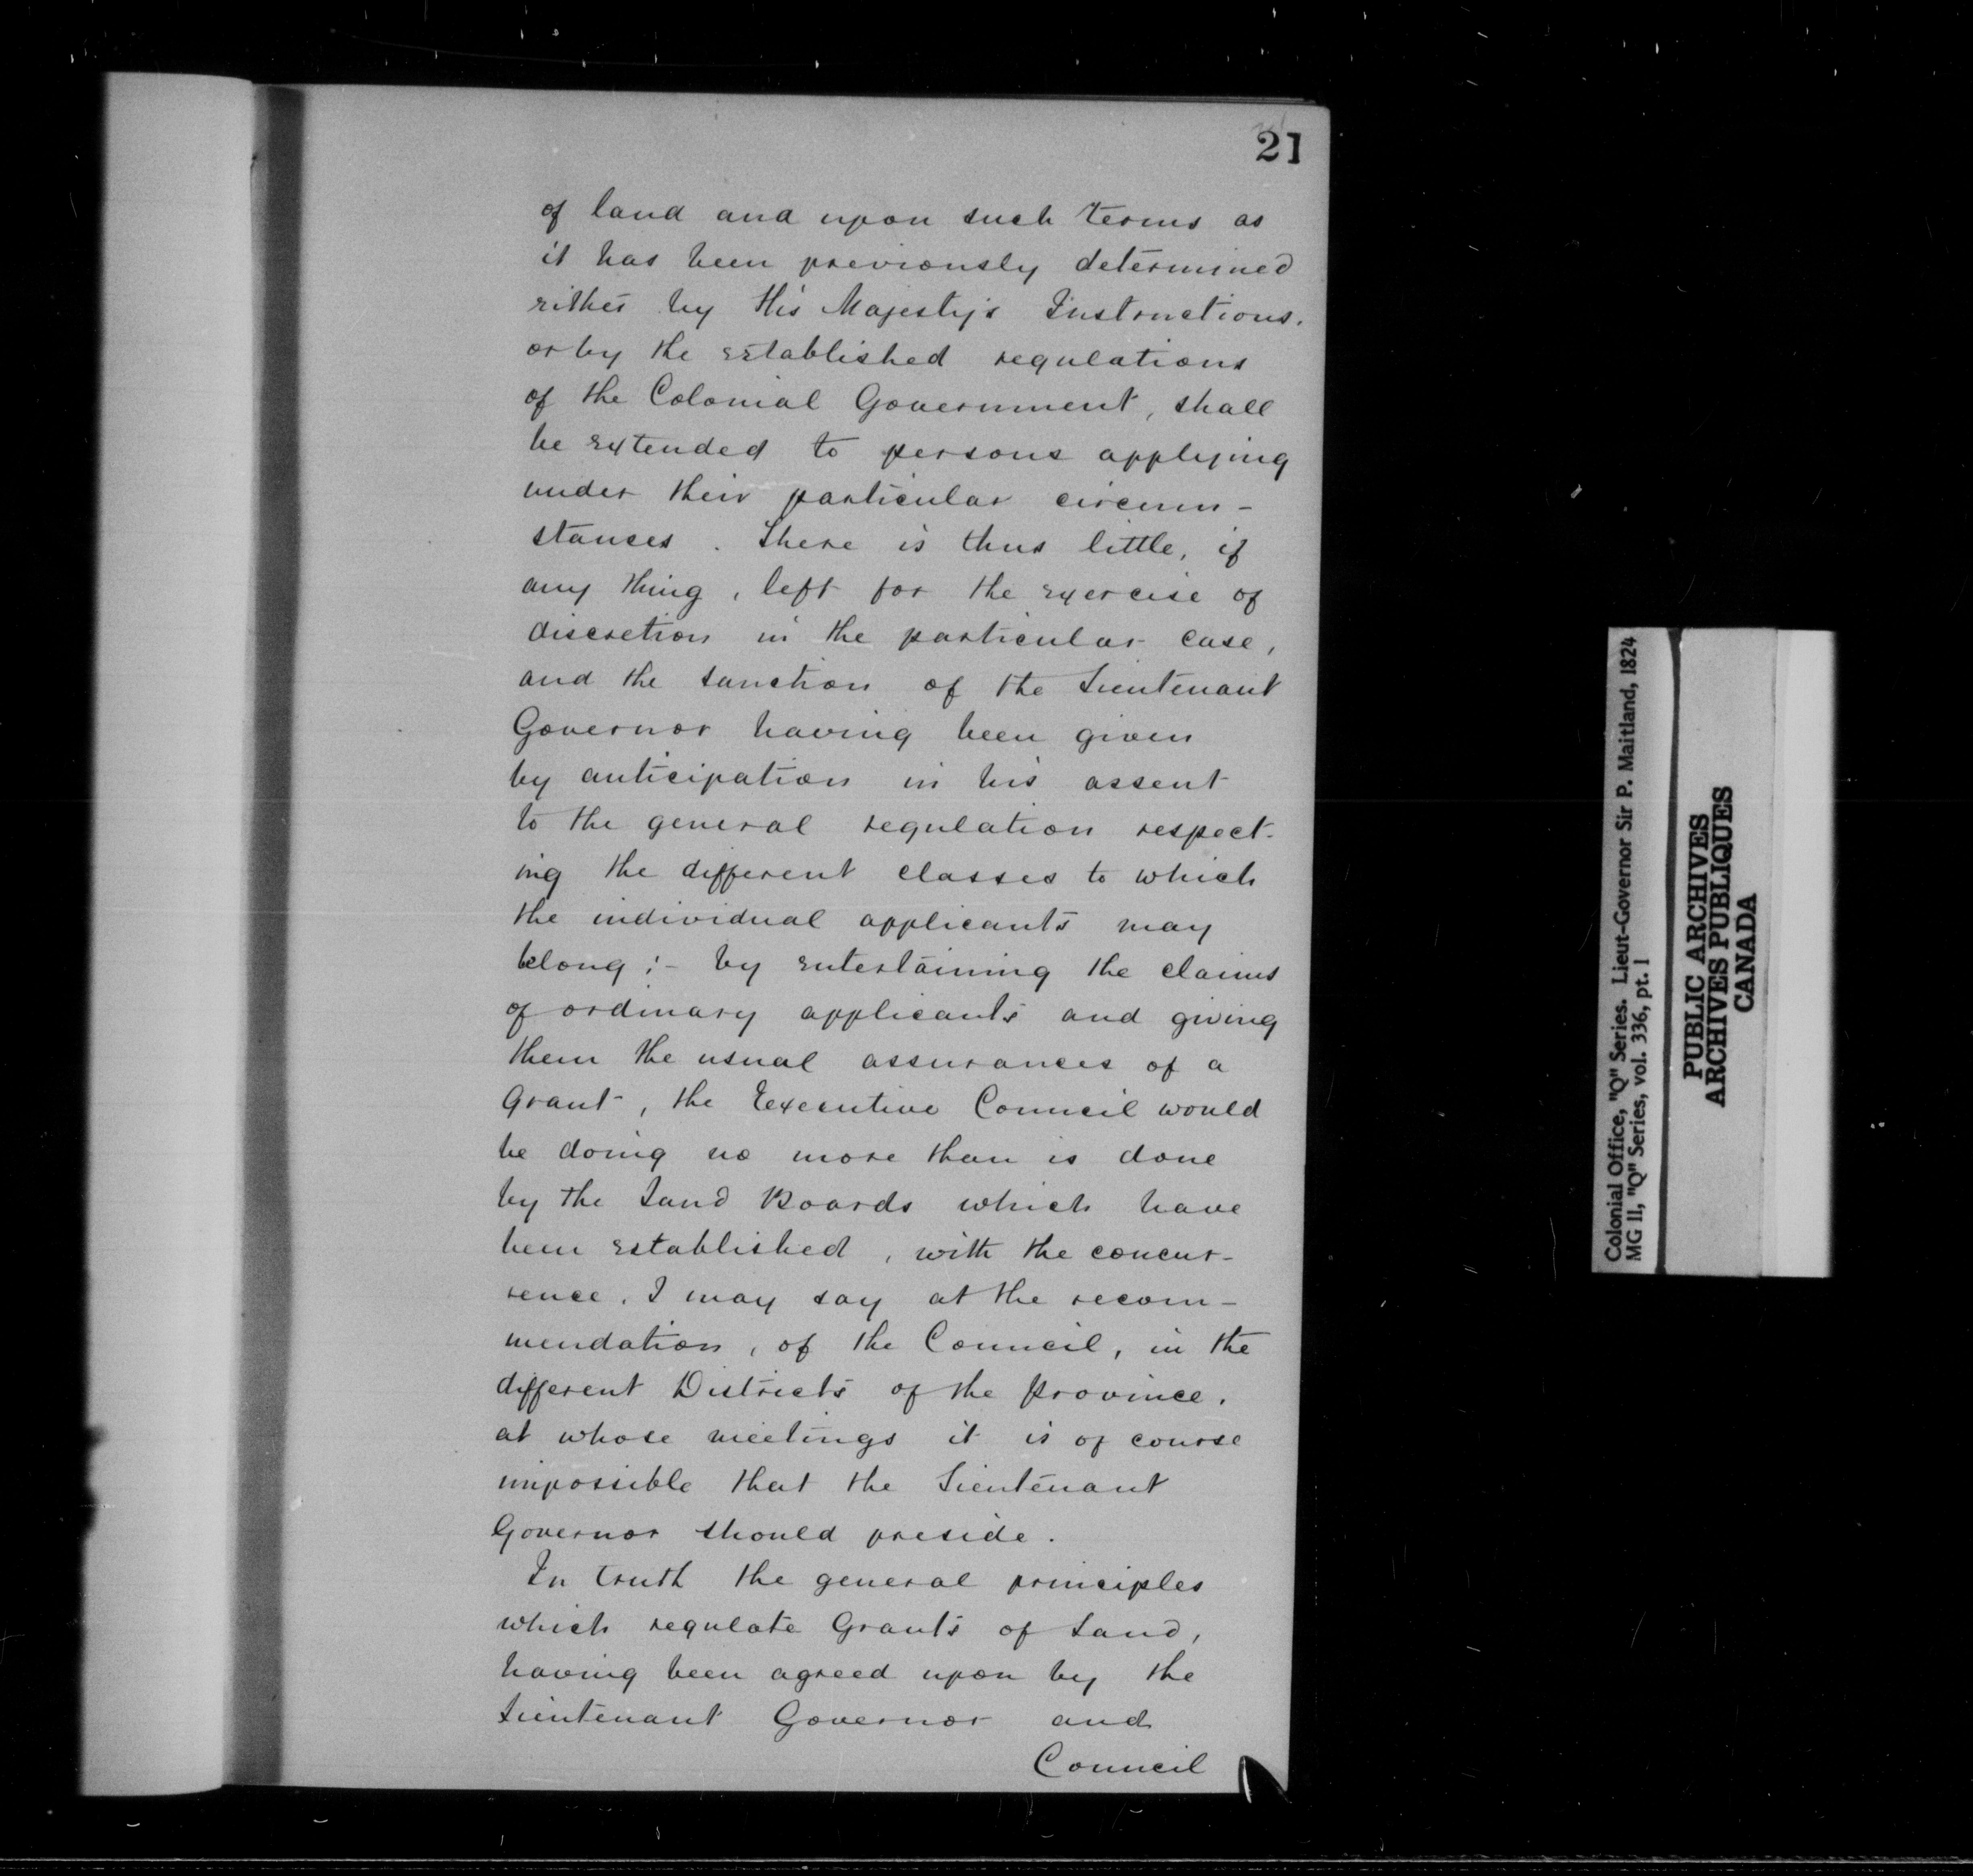 21
of land and upon such terms as
it has been previously determined
either by His Majesty's Instructions,
or by the established regulations
of the Colonial Government, shall
be extended to persons applying
under their particular circum-
stances. There is thus little, if
any thing, left for the exercise of
discretion in the particular case,
and the sanction of the Lieutenant
Governor having been given
by anticipation in his assent
to the general regulation respect-
ing the different classes to which
the individual applicants may
belong:- by entertaining the claims
of ordinary applicants and giving
them the usual assurances of a
Grant, the Executive Council would
be doing no more than is done
by the Land Boards which have
been established, with the concur-
rence, I may say at the recom-
mendation, of the Council, in the
different Districts of the province,
at whose meetings it is of course
impossible that the Lieutenant
Governor should preside.
In truth the general principles
which regulate Grants of Land,
having been agreed upon by the
Lieutenant Governor and
Council
Colonial Office, "Q" Series. Lieut-Governor Sir P. Maitland, 1824
MG 11, "Q" Series, vol. 336, pt. 1
PUBLIC ARCHIVES
ARCHIVES PUBLIQUES
CANADA